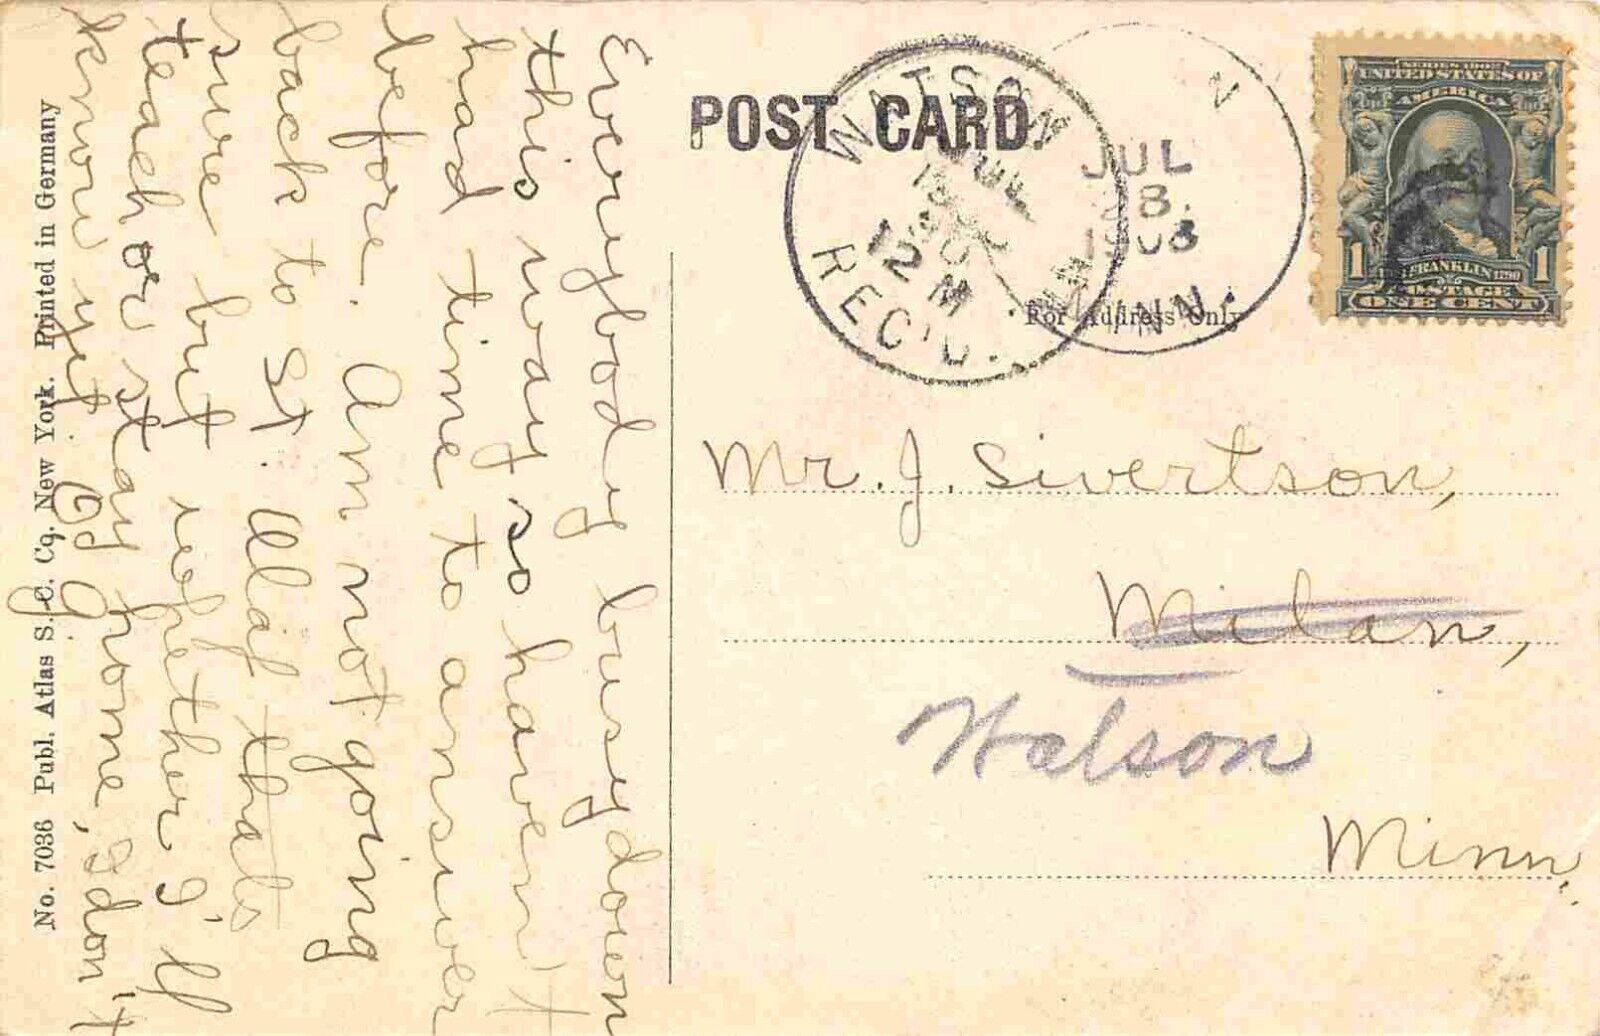 Everybody busy down
this way so haven't
had time to answer
before. Am not going
back to St. Olaf thats
sure but whether I'll
teach or stay home, I don't
know yet.
No. 7036 Publ. Atlas S. C. Co, New York. Printed in Germany
POST CARD
WATSON
JUL
12 M
REC'D.
MINN.
N
JUL
8.
1908
MINN.
SERIES 1902
UNITED STATES OF
AMERICA
1 FRANKLIN 1790 1
POSTAGE
ONE CENT
For Address Only
Mr. J. Sivertson,
Milan,
Watson
Minn.